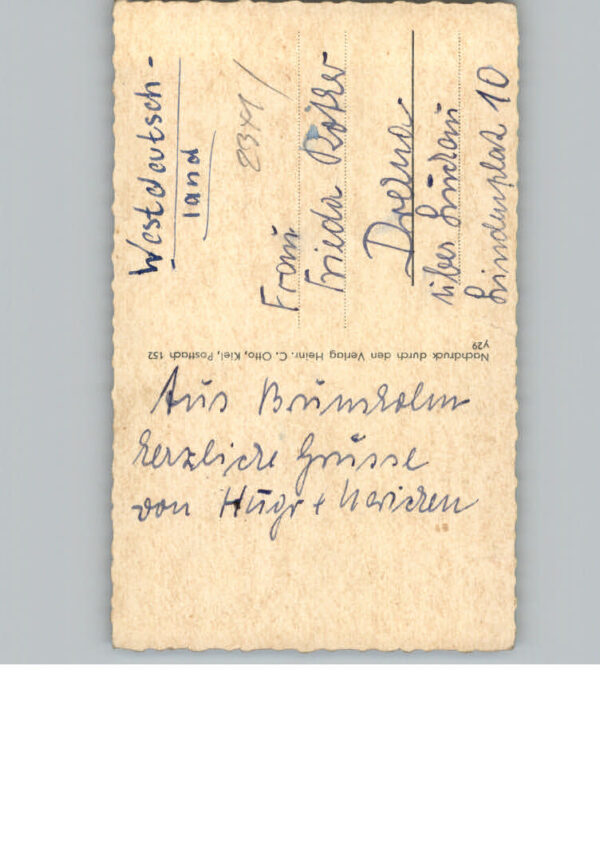 Westdeutsch-
land
2341
Frau
Frieda
Drehna
über Luckau
Lindenplatz 10
Nachdruck durch den Verlag Heinr. C. Otto, Kiel, Postfach 152
y29
Aus Brunsholm
herzliche Grüsse
von Hugo +